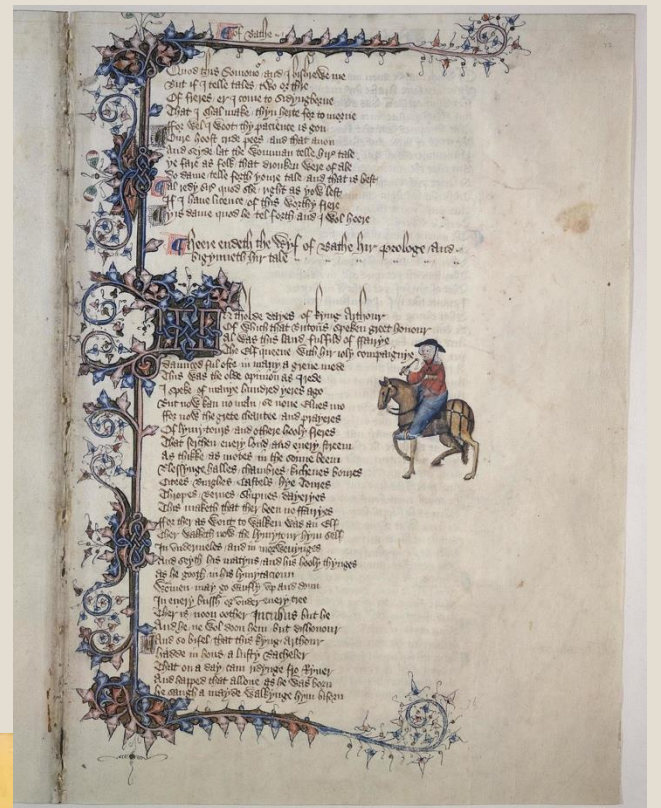 of Bathe
Quod this Somono and I bishrewe me
But if I telle tales two or thre
Of freres er I come to Sidyngborne
That I shal make thyn herte for to morne
ffor wel I woot thy pacience is gon
Oure hoost cride pees and that anon
And seyde lat the womman telle hir tale
Ye fare as folk that dronken were of ale
Do dame telle forth youre tale and that is best
Al redy sir quod she right as yow lest
If I haue licence of this worthy frere
Yis dame quod he tel forth and I wol heere
Heere endeth the Wyf of Bathe hir prologe And
bigynneth hir tale
In tholde dayes of kyng Arthour
Of which that Britons speken greet honour
Al was this land fulfild of ffairye
The Elf queene with hir ioly compaignye
Daunced ful ofte in many a grene mede
This was the olde opinion as I rede
I speke of manye hundred yeres ago
But now kan no man se none Elues mo
ffor now the grete charitee and prayeres
Of lymytours and othere hooly freres
That serchen euery lond and euery streem
As thikke as motes in the sonne beem
Blessynge halles chambres kichenes boures
Citees Burghes Castels hye Toures
Thropes Bernes Shipnes Dayeryes
This maketh that ther been no ffairyes
ffor ther as wont to walken was an Elf
Ther walketh now the lymytour hym self
In vndermeles and in morwenynges
And seyth his matyns and his hooly thynges
As he gooth in his lymytacioun
Wommen may go saufly vp and doun
In euery bussh or vnder euery tree
Ther is noon oother Incubus but he
And he ne wol doon hem but dishonour
And so bifel that this kyng Arthour
Hadde in hous a lusty Bacheler
That on a day cam ridynge fro Ryuer
And happed that allone as he was born
He saugh a mayde walkynge hym biforn